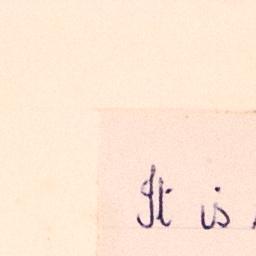 It is